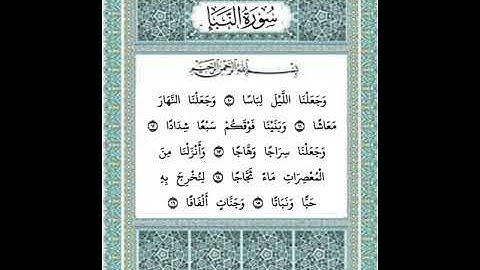 سُورَةُ النَّبَإِ
بِسْمِ اللَّهِ الرَّحْمَٰنِ الرَّحِيمِ
وَجَعَلْنَا اللَّيْلَ لِبَاسًا ⑩ وَجَعَلْنَا النَّهَارَ
مَعَاشًا ⑪ وَبَنَيْنَا فَوْقَكُمْ سَبْعًا شِدَادًا ⑫
وَجَعَلْنَا سِرَاجًا وَهَّاجًا ⑬ وَأَنْزَلْنَا مِنَ
الْمُعْصِرَاتِ مَاءً ثَجَّاجًا ⑭ لِنُخْرِجَ بِهِ
حَبًّا وَنَبَاتًا ⑮ وَجَنَّاتٍ أَلْفَافًا ⑯